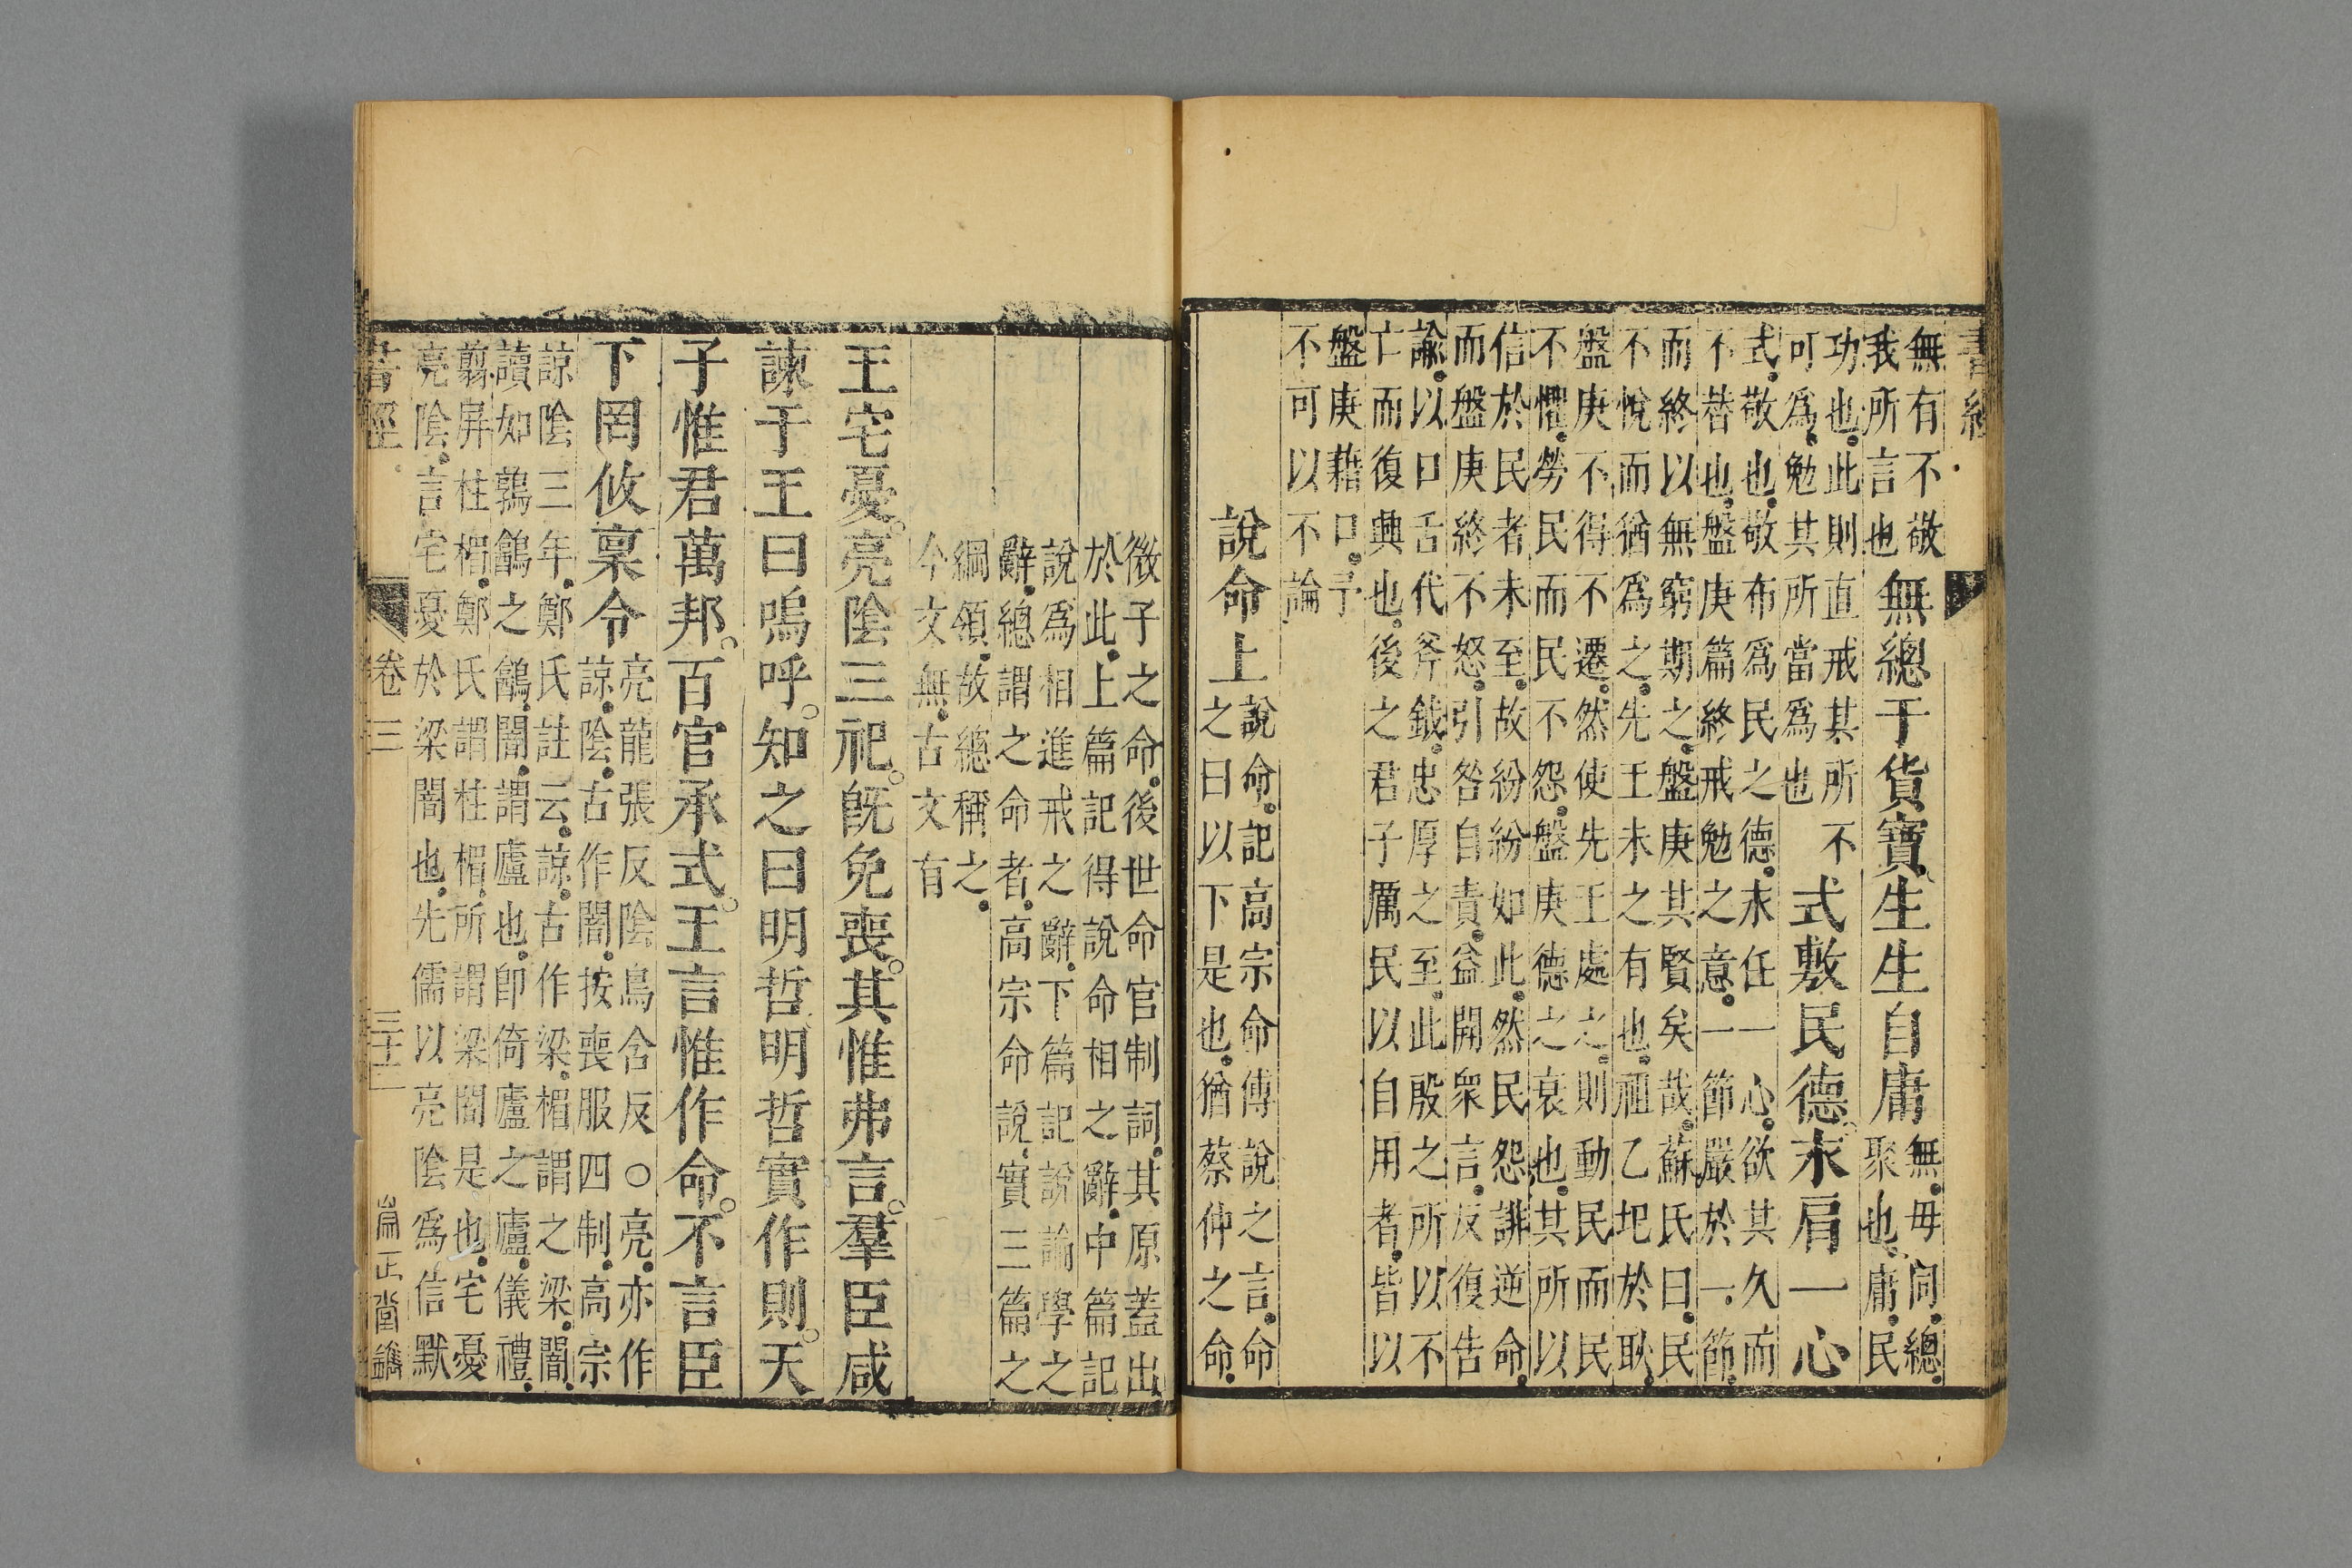 書經
無有不敬
我所言也
無總于貨寶生生自庸
無毋同總
聚也庸民
功也此則直戒其所不
可爲勉其所當爲也
式敷民德永肩一心
式敬也敬布爲民之德永任一心欲其久而
不替也盤庚篇終戒勉之意一節嚴於一節
而終以無窮期之盤庚其賢矣哉蘇氏曰民
不悅而猶爲之先王未之有也祖乙圯於耿
盤庚不得不遷然使先王處之則動民而民
不懼勞民而民不怨盤庚德之衰也其所以
信於民者未至故紛紛如此然民怨誹逆命
而盤庚終不怒引咎自責益開衆言反復告
諭以口舌代斧鉞忠厚之至此殷之所以不
亡而復興也後之君子厲民以自用者皆以
盤庚藉口予
不可以不論
說命上
說命記高宗命傅說之言命
之曰以下是也猶蔡仲之命
微子之命後世命官制詞其原蓋出
於此上篇記得說命相之辭中篇記
說爲相進戒之辭下篇記說論學之
辭總謂之命者高宗命說實三篇之
綱領故總稱之
今文無古文有
王宅憂亮陰三祀旣免喪其惟弗言羣臣咸
諫于王曰嗚呼知之曰明哲明哲實作則天
子惟君萬邦百官承式王言惟作命不言臣
下罔攸稟令
亮龍張反陰烏含反○亮亦作
諒陰古作闇按喪服四制高宗
諒陰三年鄭氏註云諒古作梁楣謂之梁闇
讀如鶉䳺之䳺闇謂廬也卽倚廬之廬儀禮
翦屏柱楣鄭氏謂柱楣所謂梁闇是也宅憂
亮陰言宅憂於梁闇也先儒以亮陰爲信默
書經
卷三
三十一
崇正堂鐫